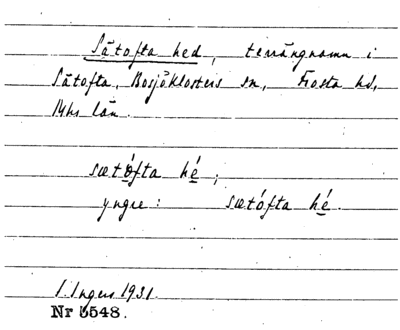 Sätofta hed, terrängnamn i
Sätofta, Bosjöklosters sn, Frosta hd,
Mhs län.
sætófta hé;
yngre: sætófta hé.
I. Ingers 1931.
Nr 5548.